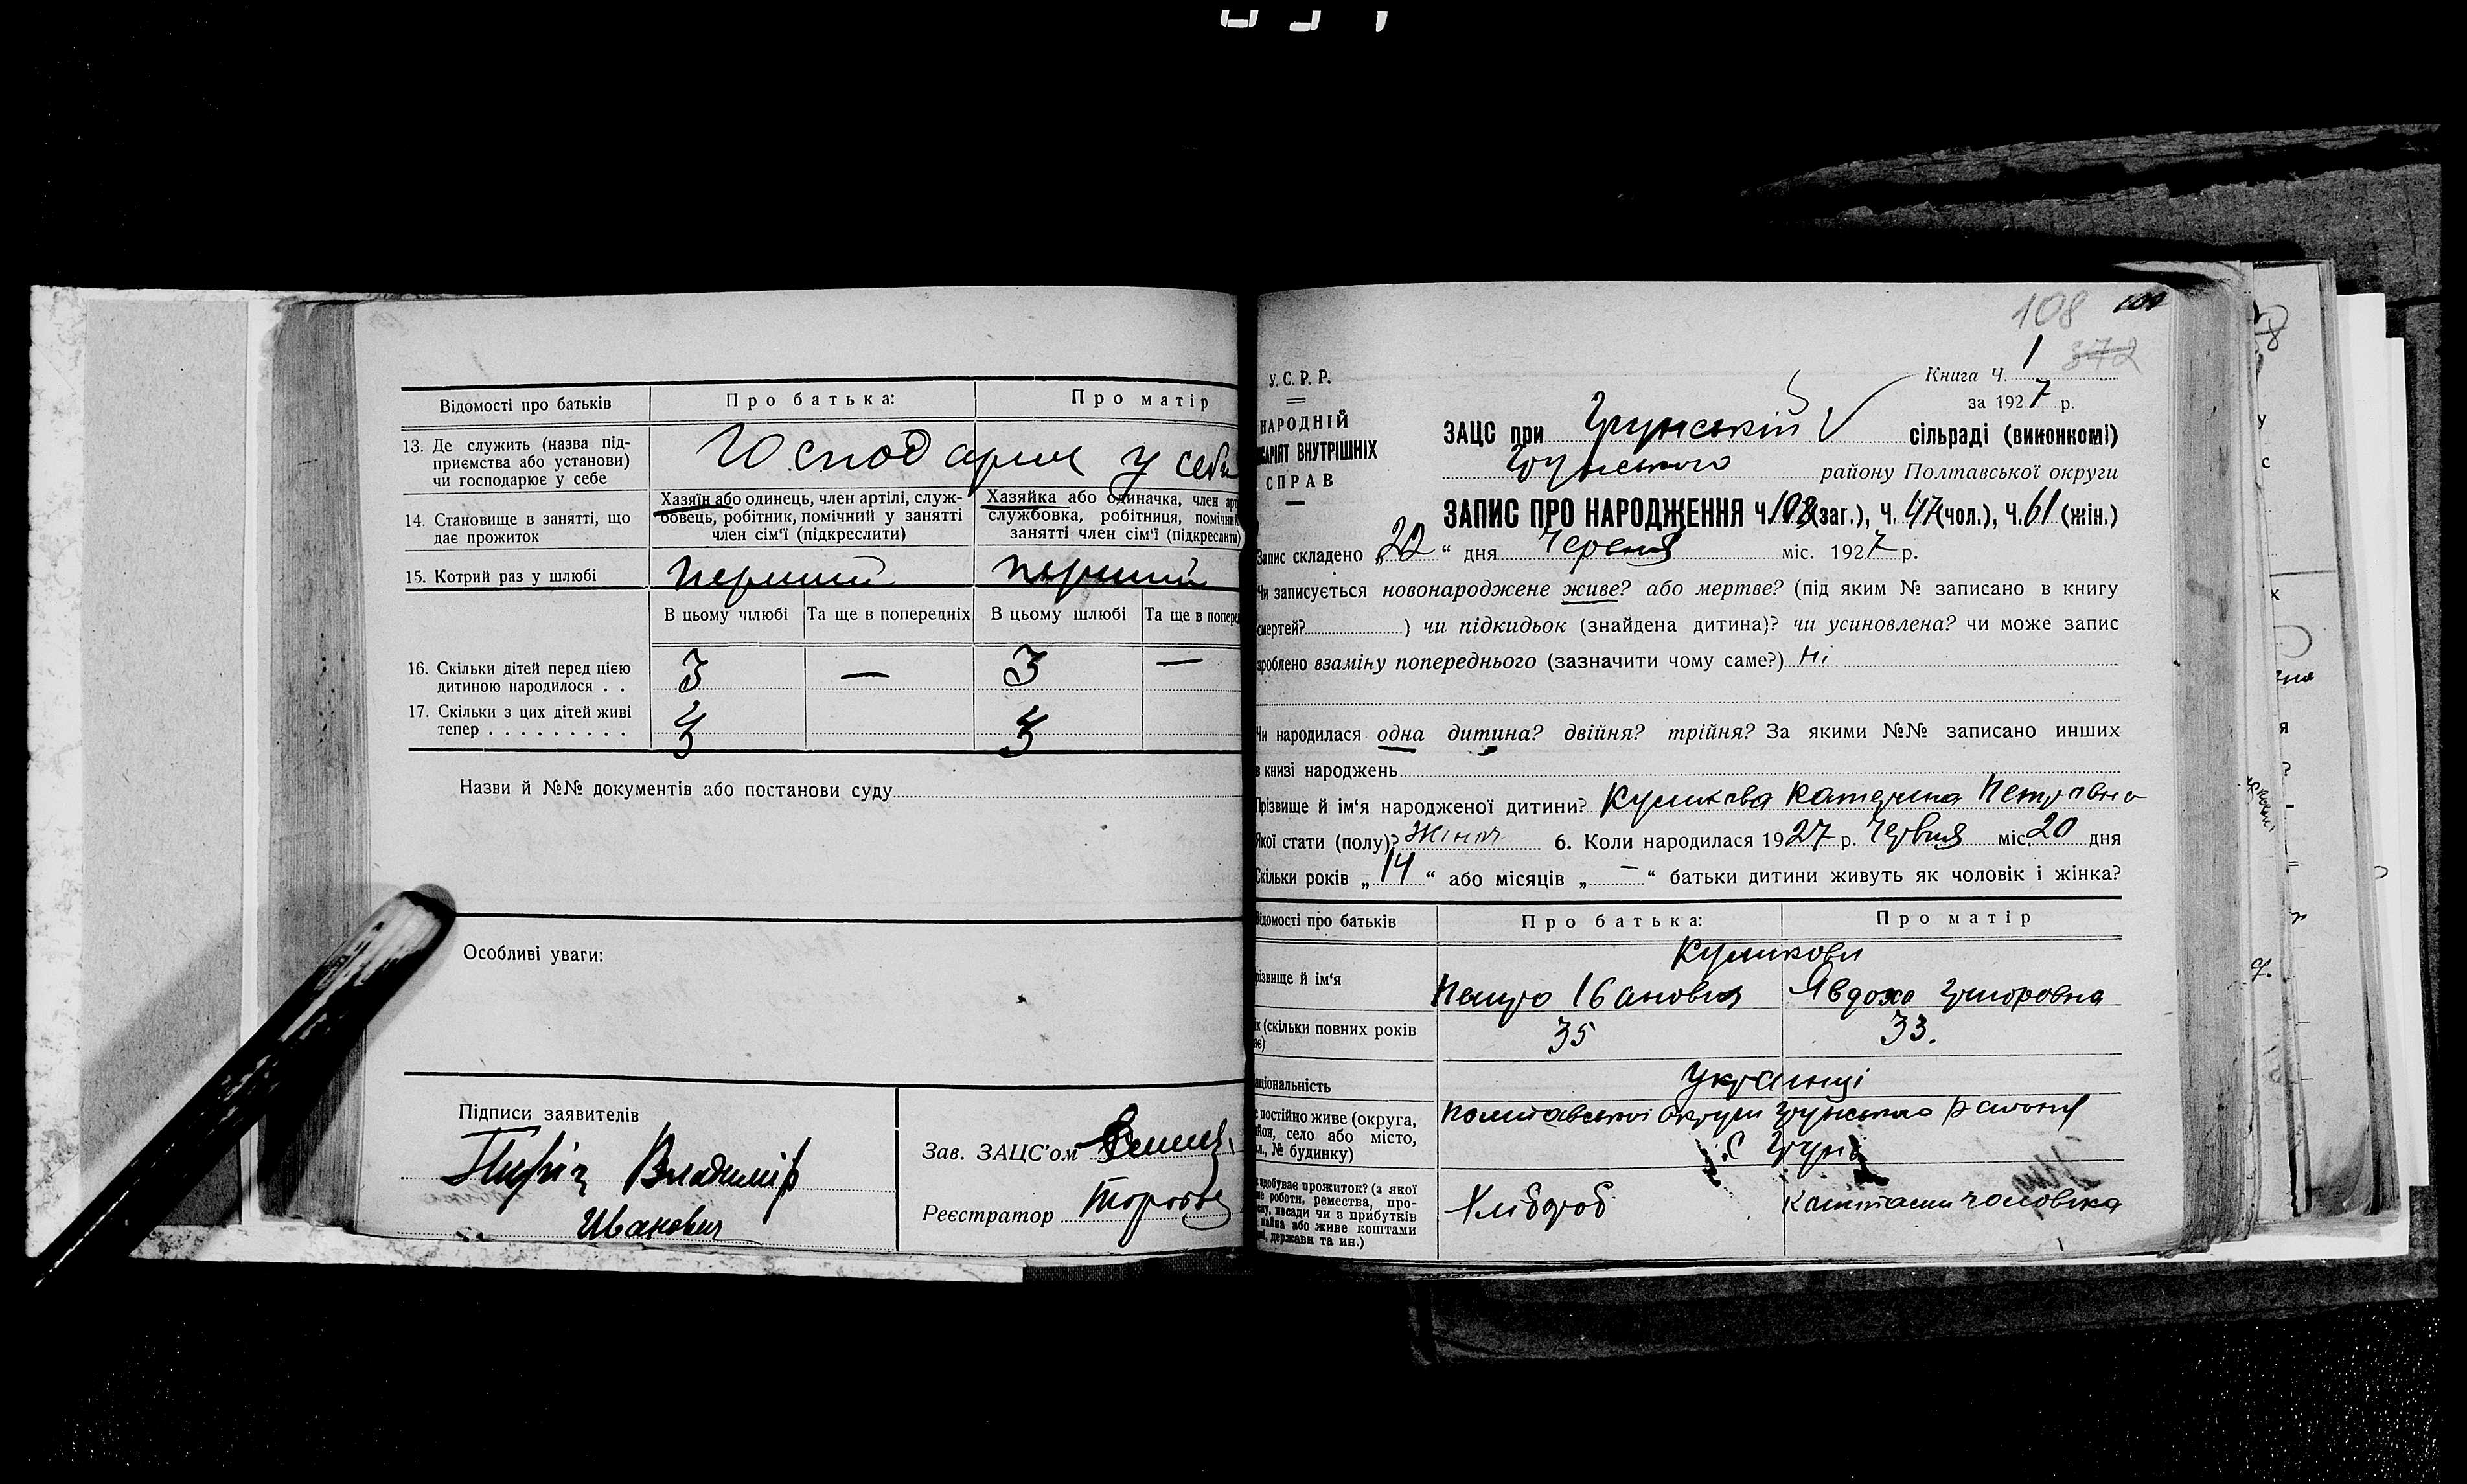 Відомості про батьків
Про батька:
Про матір
13. Де служить (назва під-
приємства або установи)
чи господарює у себе
Господарює у себе
14. Становище в занятті, що
дає прожиток
Хазяїн або одинець, член артілі, служ-
бовець, робітник, помічний у занятті
член сім'ї (підкреслити)
Хазяйка або одиначка, член арті
службовка, робітниця, помічни
занятті член сім'ї (підкреслити)
15. Котрий раз у шлюбі
перший
перший
В цьому шлюбі
Та ще в попередніх
В цьому шлюбі
Та ще в попере
16. Скільки дітей перед цією
дитиною народилося . .
3
—
3
—
17. Скільки з цих дітей живі
тепер . . . . . . . . .
3
3
Назви й №№ документів або постанови суду
Особливі уваги:
Підписи заявителів
Владимір
Иванович
Зав. ЗАЦС'ом
Реєстратор
108
372
Книга Ч. 1
за 1927 р.
У.С.Р.Р.
НАРОДНІЙ
САРІЯТ ВНУТРІШНІХ
СПРАВ
ЗАЦС при Грунській сільраді (виконкомі)
Грунського району Полтавської округи
ЗАПИС ПРО НАРОДЖЕННЯ Ч. 108 (заг.), Ч. 47 (чол.), Ч. 61 (жін.)
Запис складено „22“ дня Червня міс. 1927 р.
Чи записується новонароджене живе? або мертве? (під яким № записано в книгу
смертей? ) чи підкидьок (знайдена дитина)? чи усиновлена? чи може запис
зроблено взаміну попереднього (зазначити чому саме?) ні
Чи народилася одна дитина? двійня? трійня? За якими №№ записано инших
в книзі народжень
Прізвище й ім'я народженої дитини? Куликова Катерина Петровна
Якої стати (полу)? Жіноч 6. Коли народилася 1927 р. Червня міс. 20 дня
Скільки років „14“ або місяців „—“ батьки дитини живуть як чоловік і жінка?
Відомості про батьків
Про батька:
Про матір
Куликови
різвище й ім'я
Петро Іванович
Явдоха Григоровна
ік (скільки повних років
ає)
35
33.
аціональність
Українці
е постійно живе (округа,
айон, село або місто,
ул., № будинку)
Полтавської округи Грунського району
с Грунь
к здобуває прожиток? (з якої
ме роботи, ремества, про-
лу, посади чи з прибутків
майна або живе коштами
ні, держави та ин.)
Хлібороб
Коштами чоловіка